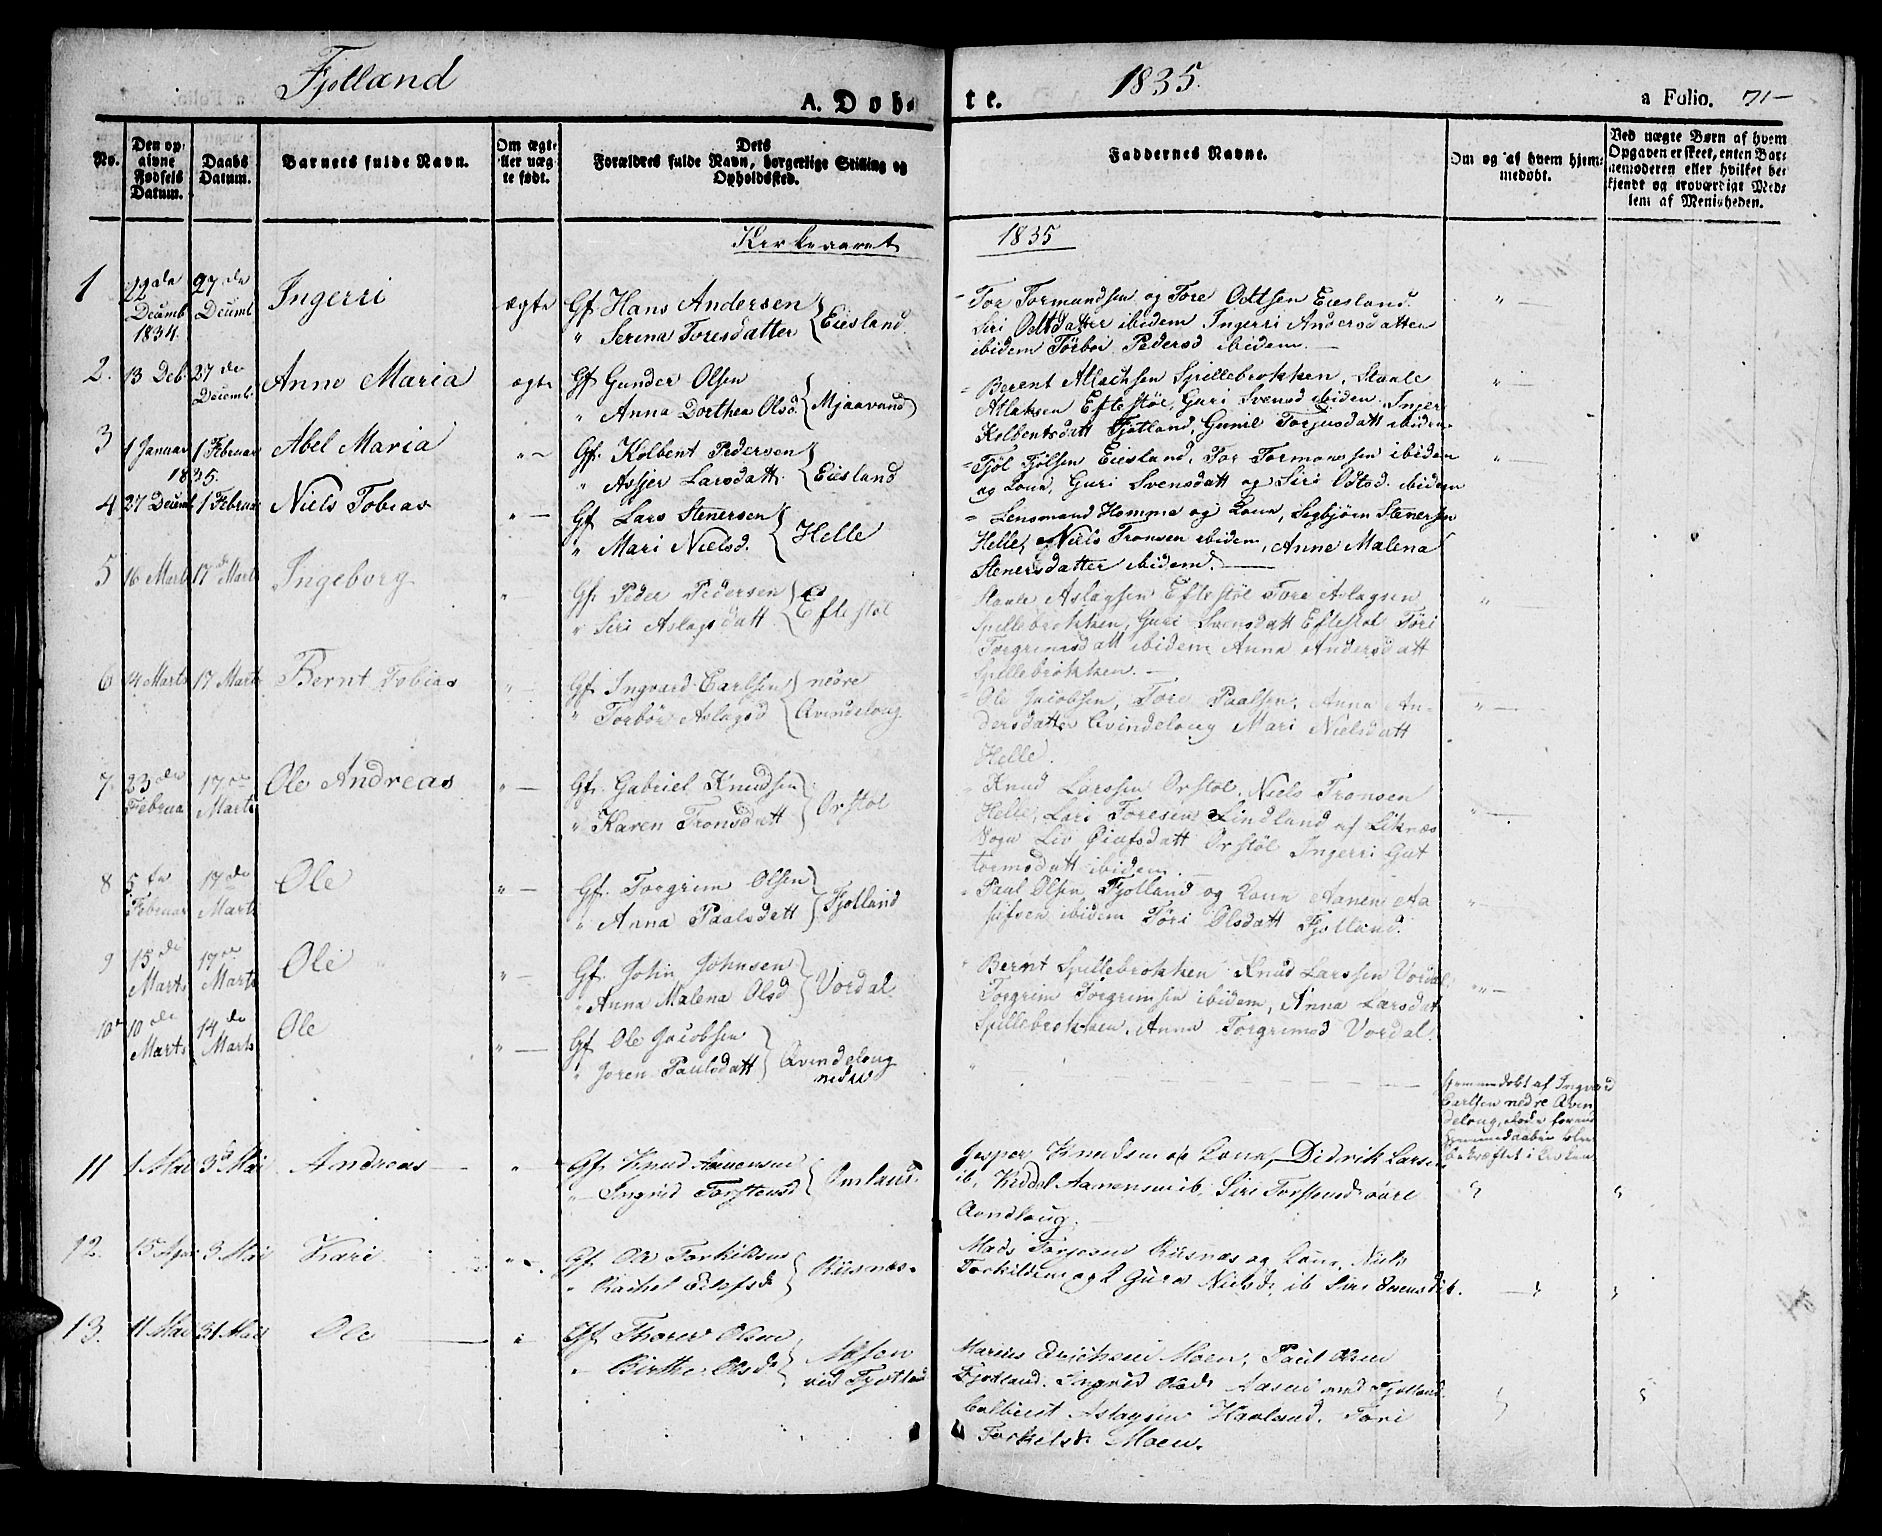 Fjotland
1835.
A. Døb-
te.
a Folio. 71-
No.
Den op-
givne
Fødsels
Datum.
Daabs
Datum.
Barnets fulde Navn.
Om ægte
eller uæg-
te født.
Dets
Forældres fulde Navn, borgerlige Stilling og
Opholdssted.
Faddernes Navne.
Om og af hvem hjem-
medøbt.
Ved uægte Børn af hvem
Opgaven er skeet, enten Bar-
nemoderen eller hvilket be-
kjendt og troværdigt Med-
lem af Menigheden.
Kirkeaaret
1835
1
22de
Decemb
1834.
27de
Decemb
Ingerri
ægte
Gf. Hans Andersen
" Serina Toresdatter
Eiesland
Tor Tormundsen og Tore Odtsen Eiesland.
Siri Odtsdatter ibidem Ingerri Andersdatter
ibidem Torbor Pedersd ibidem.
2.
13 Deb.
27de
Decemb.
Anne Maria
ægte
Gf Gunder Olsen
" Anna Dorthea Olsd.
Mjaavand
Berent Atlachsen Spillebrokken, Staale
Atlaksen Eftestøl, Guri Svensd ibidem. Inger
Kolbentsdatt Fjotland, Gunil Torjusdatt ibidem.
3
1 Januar
1835.
1 Februar
Abel Maria
Gf. Kolbent Pedersen
" Asjer Larsdatt.
Eiesland
Tjøl Tjølsen Eiesland, Tor Tormonssen ibidem
og Kone, Guri Svensdatt og Siri Odtsd. ibidem
4
27 Decemb
1 Februar
Niels Tobias
Gf Lars Stenersen
" Mari Nielsd.
Helle
Lensmand Homme og Kone, Segbjørn Stenersen
Helle, Niels Tronsen ibidem, Anne Malena
Stenersdatter ibidem.
5
16 Marts
17de Marts
Ingeborg
Gf. Peder Pedersen
" Siri Aslagsdatt.
Eftestøl
Staale Aslagsen Eftestøl Tore Aslagsen
Spillebrokken, Guri Svensdatt Eftestøl Tøri
Torgrimsdatt ibidem Anna Andersdatt
Spillebrokken.
6
14 Marts
17 Marts
Bernt Tobias
Gf. Ingvard Carlsen
" Torbor Aslagsd
nedre
Qvindeloug
Ole Jacobsen, Tore Paalsen, Anna An-
dersdatter Qvindeloug Mari Nielsdatt
Helle.
7.
23de
Februar
17de
Marts
Ole Andreas
Gf. Gabriel Knudsen
" Karen Tronsdatt
Orstøl
Knud Larssen Orstøl, Niels Tronsen
Helle, Lars Toresen Lindland af Liknæs
Sogn Liv Oiafsdatt Orstøl Ingerri Gut
tormsdatt ibidem.
8
5te
Februar
17de
Marts
Ole
Gf. Torgrim Olsen
" Anna Paalsdatt
Fjotland
Paul Olsen Fjotland og Kone Aanen Aa
sufsen ibidem Tøri Olsdatt Fjotland.
9
15de
Marts
17de
Marts
Ole
Gf. John Johnsen
" Anna Malena Olsd
Vordal
Bernt Spillebrokken Knud Larssen Vordal
Torgrim Torgrimsen ibidem, Anna Larsdat
Spillebrokken, Anna Torgrimsd Vordal.
10
10de
Marts
14de
Marts
Ole
Gf. Ole Jacobsen
" Joren Paulsdatt
Qvindeloug
nedre
hjemmedøbt af Ingvard
Carlsen nedre Qvin
deloug,
Hjemmedaaben blev
bekræftet i Kirken
11
1 Mai
3de Mai
Andreas
Gf. Knud Aanensen
" Ingrid Torstensd
Omland.
Jesper Knudsen og Kone, Didrik Larsen
ib, Keddel Aanensen ib. Siri Torstensd øvre
Qvindloug.
12.
15 April
3 Mai
Kari
Gf. Ole Torkildsen
" Rachel Edefsd
Risnæs.
Mads Torjesen Risnæs og Kone, Niels
Torkildsen og Guro Nielsd. ib Siri Svensd ib.
13.
11 Mai
31 Mai
Ole
Gf. Thore Olsen
" Birthe Olsd
Aasen
ved Fjotland
Marius Erichsen Moen, Paul Olsen
Fjotland. Ingrid Olsd Aasen ved Fjotland
Colbent Aslagsen Haaland. Tori
Torkelsd Moen.